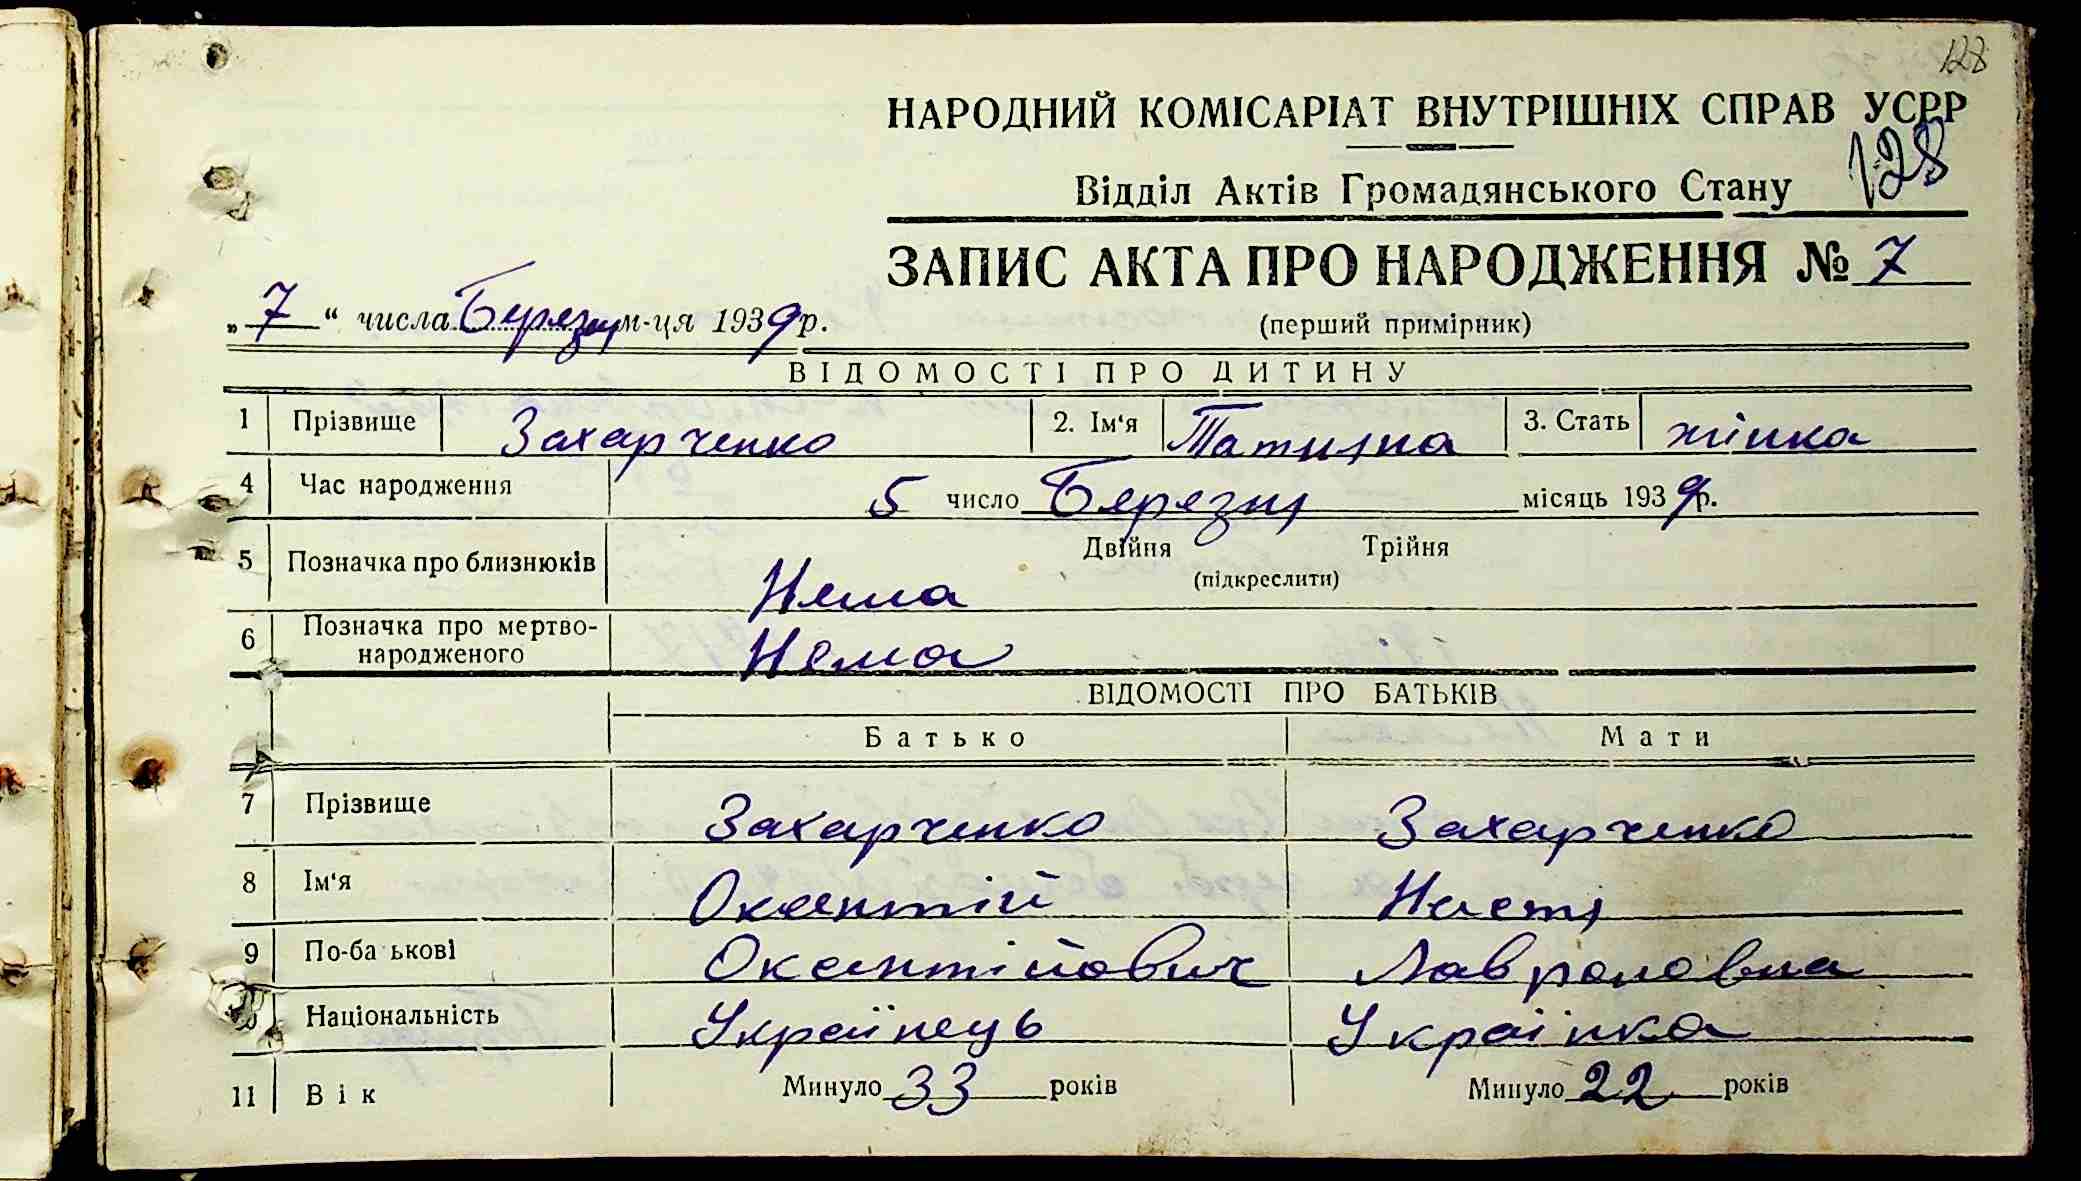 128
НАРОДНИЙ КОМІСАРІАТ ВНУТРІШНІХ СПРАВ УСРР
128
Відділ Актів Громадянського Стану
ЗАПИС АКТА ПРО НАРОДЖЕННЯ № 7
„7“ числа Березня м-ця 1939 р.
(перший примірник)
ВІДОМОСТІ ПРО ДИТИНУ
1 Прізвище Захарченко 2. Ім'я Татияна 3. Стать жінка
4 Час народження 5 число Березня місяць 1939 р.
5 Позначка про близнюків Двійня Трійня
(підкреслити)
Нема
6 Позначка про мертво-
народженого Нема
ВІДОМОСТІ ПРО БАТЬКІВ
Батько Мати
7 Прізвище Захарченко Захарченко
8 Ім'я Оксентій Настя
9 По-ба ькові Оксентійович
10 Національність Українець Українка
11 Вік Минуло 33 років Минуло 22 років